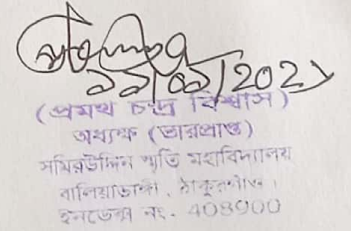 ২২/০২/202১
(প্রমথ চন্দ্র বিশ্বাস)
অধ্যক্ষ (ভারপ্রাপ্ত)
সমিরউদ্দিন স্মৃতি মহাবিদ্যালয়
বালিয়াডাঙ্গী, ঠাকুরগাঁও।
ইনডেক্স নং- 408900